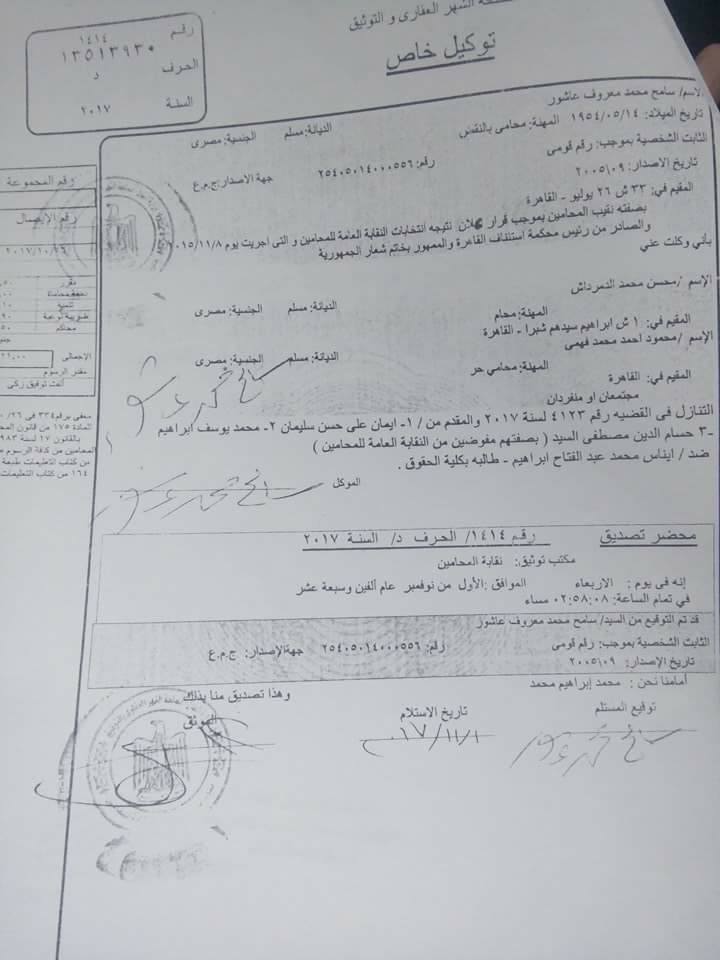 الشهر العقارى و التوثيق
توكيل خاص
رقم ١٤١٤
١٣٥١٣٩٣٠
الحرف د
السنة ٢٠١٧
الاسم/ سامح محمد معروف عاشور
تاريخ الميلاد: ١٩٥٤/٠٥/١٤ المهنة: محامى بالنقض الديانة: مسلم الجنسية: مصرى
الثابت الشخصية بموجب: رقم قومى رقم: ٢٥٤٠٥٠١٤٠٠٠٥٥٦ جهة الاصدار: ج.م.ع
تاريخ الاصدار: ٢٠٠٥/٠٩
المقيم في: ٣٣ ش ٢٦ يوليو - القاهرة
بصفته نقيب المحامين بموجب قرار اعلان نتيجه انتخابات النقابة العامة للمحامين و التى اجريت يوم ٢٠١٥/١١/٨
والصادر من رئيس محكمة استئناف القاهرة والممهور بخاتم شعار الجمهورية
بأني وكلت عني
الإسم /محسن محمد الدمرداش
المهنة: محام الديانة: مسلم الجنسية: مصرى
المقيم في: ١ ش ابراهيم سيدهم شبرا - القاهرة
الإسم /محمود احمد محمد فهمى
المهنة: محامي حر الديانة: مسلم الجنسية: مصرى
المقيم في: القاهرة
مجتمعان او منفردان
التنازل فى القضيه رقم ٤١٢٣ لسنة ٢٠١٧ والمقدم من / ١- ايمان على حسن سليمان ٢- محمد يوسف ابراهيم
٣- حسام الدين مصطفى السيد ( بصفتهم مفوضين من النقابة العامة للمحامين )
ضد / ايناس محمد عبد الفتاح ابراهيم - طالبه بكلية الحقوق .
الموكل
سامح محمد عاشور
محضر تصديق رقم ١٤١٤/ الحرف د/ السنة ٢٠١٧
مكتب توثيق: نقابة المحامين
إنه فى يوم : الاربعاء الموافق :الأول من نوفمبر عام ألفين وسبعة عشر
في تمام الساعة: ٠٢:٥٨:٠٨ مساء
قد تم التوقيع من السيد/ سامح محمد معروف عاشور
الثابت الشخصية بموجب: رقم قومى رقم: ٢٥٤٠٥٠١٤٠٠٠٥٥٦ جهة الإصدار: ج.م.ع
تاريخ الإصدار: ٢٠٠٥/٠٩
أمامنا نحن : محمد إبراهيم محمد وهذا تصديق منا بذلك
توقيع المستلم تاريخ الاستلام الموثق
سامح محمد عاشور
رقم المجموعة
رقم الايصال
٢٠١٧/١٠/٢٦
مقرر
تنمية
محاكم
الاجمالى
٢١,٠٠
مقدر الرسوم
ألفت توفيق زكى
معفى برقم ٣٣٤ فى ٢٦/
المادة ١٧٥ من قانون المحا
بالقانون ١٧ لسنة ٩٨٣
المحامين من كافة الرسوم
من كتاب التعليمات طبعة
١٦٤ من كتاب التعليمات